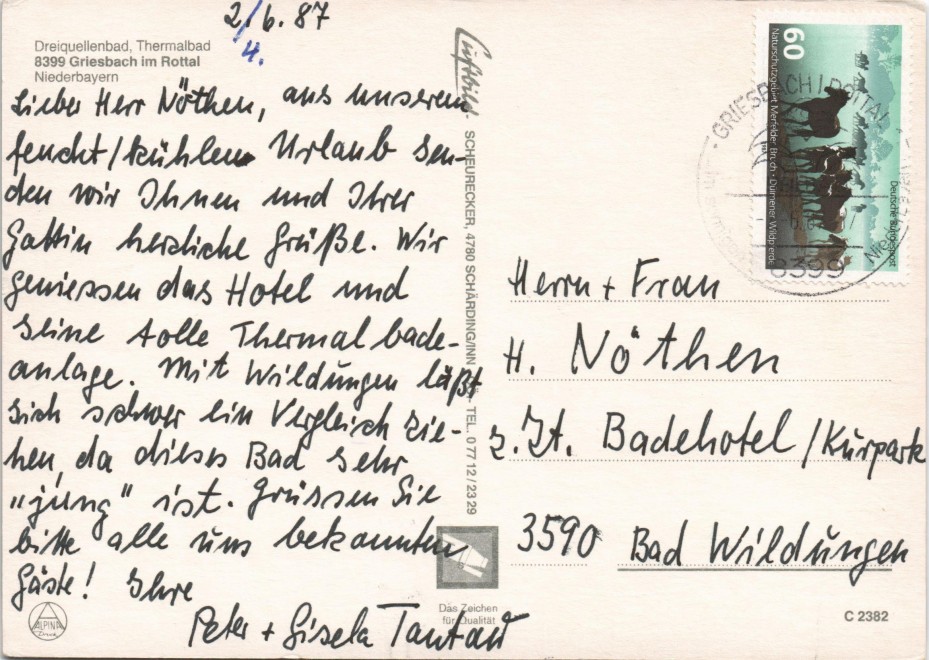 2/6. 87
4.
Dreiquellenbad, Thermalbad
8399 Griesbach im Rottal
Niederbayern
Lieber Herr Nöthen, aus unserem
feucht/kühlen Urlaub sen-
den wir Ihnen und Ihrer
Gattin herzliche Grüße. Wir
geniessen das Hotel und
seine tolle Thermalbade-
anlage. Mit Wildungen läßt
sich schwer ein Vergleich zie-
hen, da dieses Bad sehr
„jung" ist. Grüssen Sie
bitte alle uns bekannten
Gäste! Ihre
Peter + Gisela
ALPINA
Druck
Luftbild
SCHEURECKER, 4780 SCHÄRDING/INN
TEL. 0 77 12 / 23 29
Das Zeichen
für Qualität
60
Naturschutzgebiet Merfelder Bruch · Dülmener Wildpferde
Deutsche Bundespost
GRIESBACH I ROTTAL
8399
Herrn + Frau
H. Nöthen
z. Zt. Badehotel /Kurpark
3590 Bad Wildungen
C 2382